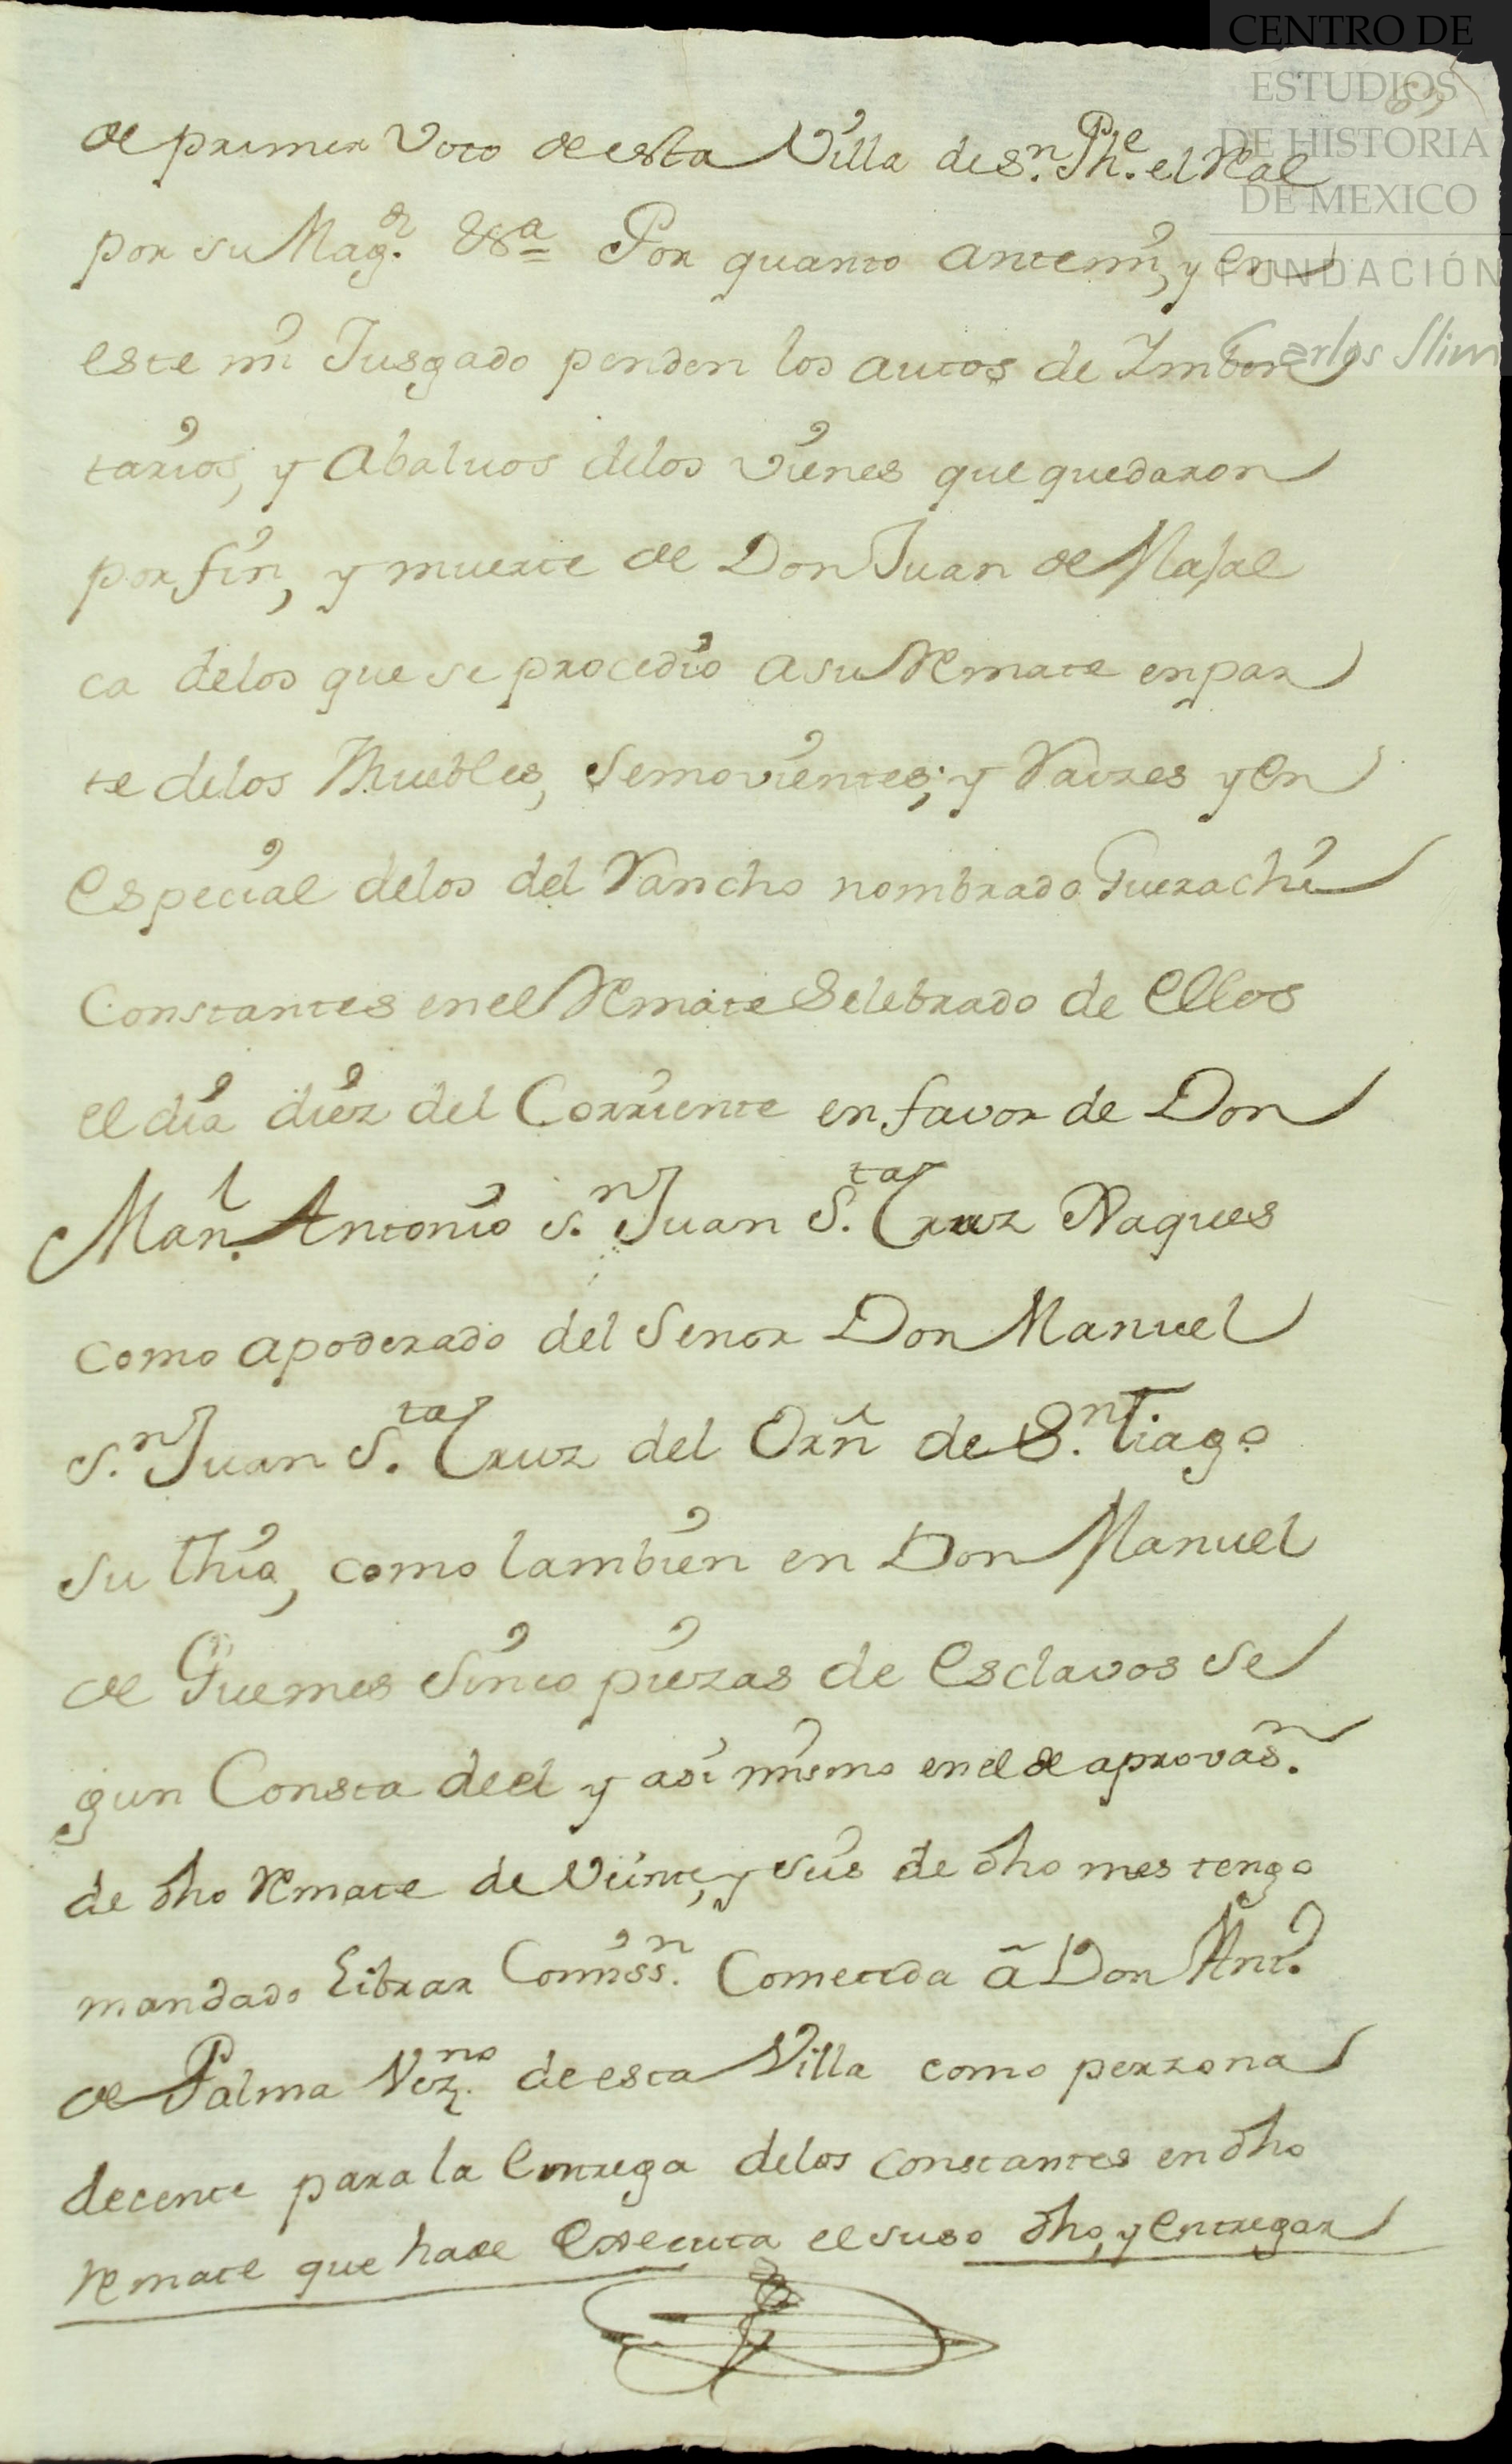 CENTRO DE
ESTUDIOS
DE HISTORIA
DE MEXICO
FUNDACIÓN
Carlos Slim
de primer Voto de esta Villa de Sn. Phe. el Real
por su Magd. &a Por quanto antemi, y en
este mi Jusgado penden los autos de Imben
tarios, y Abaluos delos vienes que quedaron
por fin, y muerte de Don Juan de Masal
ca delos que se procedio a su Remate en par
te delos Muebles, Semovientes; y Raizes y en
Especial delos del Rancho nombrado Guerachi
Constantes en el Remate Selebrado de Ellos
el dia diez del Corriente en favor de Don
Manl. Antonio Sn. Juan Sta. Cruz Xaques
como apoderado del Senor Don Manuel
Sn. Juan Sta. Cruz del Orñ de Sn. Tiago
su thio, como tambien en Don Manuel
de Guemes Sinco piezas de Esclavos Se
gun Consta de el y asi mismo en el de aprovasn.
de dho Remate de Veinte, y seis de dho mes tengo
mandado Librar Comissn. Cometida â Don Anto.
de Palma Vezno. de esta Villa como perzona
decente para la Entrega delos constantes en dho
Remate que hase Executa el suso dho, y Entregar